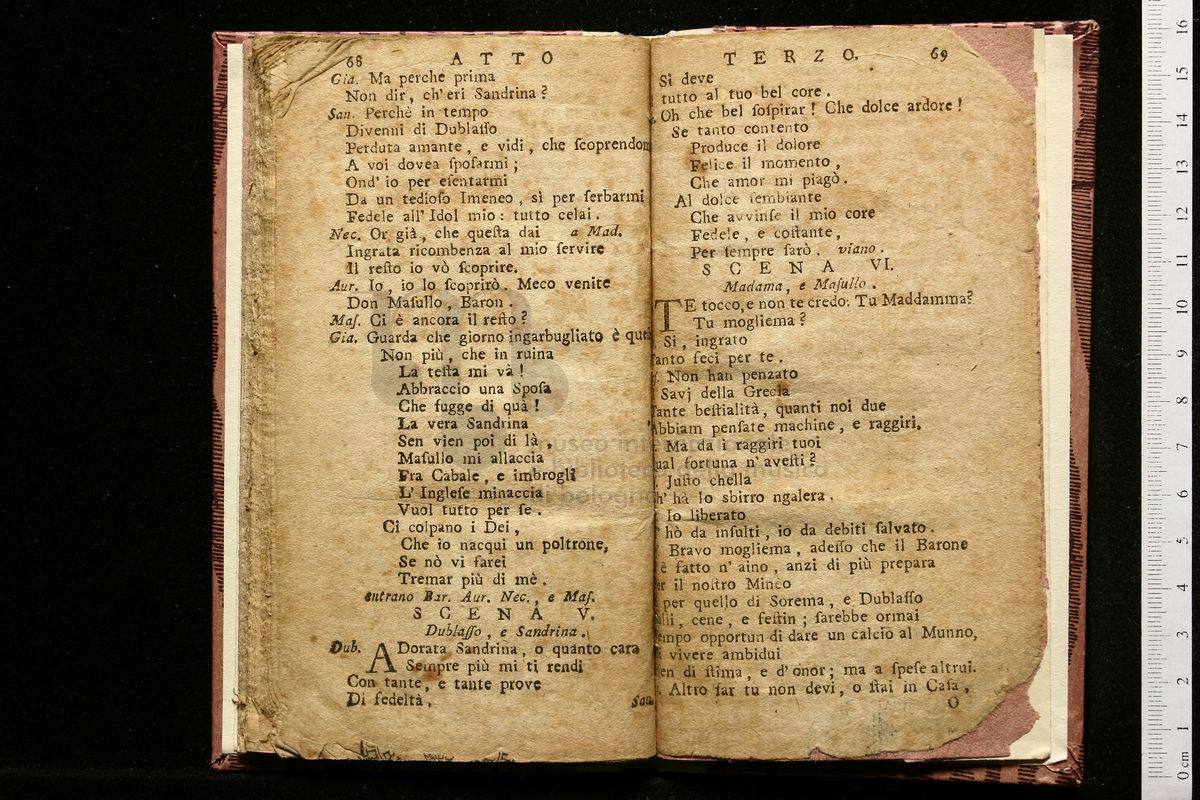 68 ATTO
Gia. Ma perche prima
Non dir, ch'eri Sandrina?
San. Perchè in tempo
Divenni di Dublaſſo
Perduta amante, e vidi, che ſcoprendom
A voi dovea ſpoſarmi;
Ond' io per eſentarmi
Da un tedioſo Imeneo, sì per ſerbarmi
Fedele all' Idol mio: tutto celai.
Nec. Or già, che queſta dai a Mad.
Ingrata ricombenza al mio ſervire
Il reſto io vò ſcoprire.
Aur. Io, io lo ſcoprirò. Meco venite
Don Maſullo, Baron.
Maſ. Ci è ancora il reſto?
Gia. Guarda che giorno ingarbugliato è que
Non più, che in ruina
La teſta mi và!
Abbraccio una Spoſa
Che fugge di quà!
La vera Sandrina
Sen vien poi di là,
Maſullo mi allaccia
Fra Cabale, e imbrogli
L' Ingleſe minaccia
Vuol tutto per ſe.
Ci colpano i Dei,
Che io nacqui un poltrone,
Se nò vi farei
Tremar più di mè.
entrano Bar. Aur. Nec., e Maſ.
SCENA V.
Dublaſſo, e Sandrina.
Dub. ADorata Sandrina, o quanto cara
Sempre più mi ti rendi
Con tante, e tante prove
Di fedeltà.
San.
TERZO. 69
Si deve
tutto al tuo bel core.
Oh che bel ſoſpirar! Che dolce ardore!
Se tanto contento
Produce il dolore
Felice il momento,
Che amor mi piagò.
Al dolce ſembiante
Che avvinſe il mio core
Fedele, e coſtante,
Per ſempre ſarò. viano.
SCENA VI.
Madama, e Maſullo.
TE tocco, e non te credo: Tu Maddamma?
Tu mogliema?
Si, ingrato
Tanto feci per te.
Non han penzato
Savj della Grecia
Tante beſtialità, quanti noi due
Abbiam penſate machine, e raggiri.
Ma da i raggiri tuoi
ual fortuna n' aveſti?
Juſto chella
h' hà lo sbirro ngalera.
Io liberato
' hò da inſulti, io da debiti ſalvato.
Bravo mogliema, adeſſo che il Barone
è fatto n' aino, anzi di più prepara
er il noſtro Mineo
per quello di Sorema, e Dublaſſo
alli, cene, e feſtin; ſarebbe ormai
empo opportun di dare un calcio al Munno,
vivere ambidui
en di ſtima, e d'onor; ma a ſpeſe altrui.
Altro far tu non devi, o ſtai in Caſa,
O